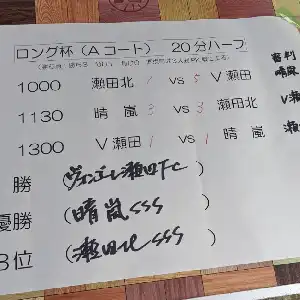 ロング杯(Aコート) 20分ハーフ
審判
1000 瀬田北 1 VS 5 V瀬田 晴嵐
1130 晴嵐 3 VS 3 瀬田北 V瀬
1300 V瀬田 1 VS 1 晴嵐 瀬田
勝 (ヴィオレ瀬田FC)
優勝 (晴嵐SSS)
3位 (瀬田北SSS)